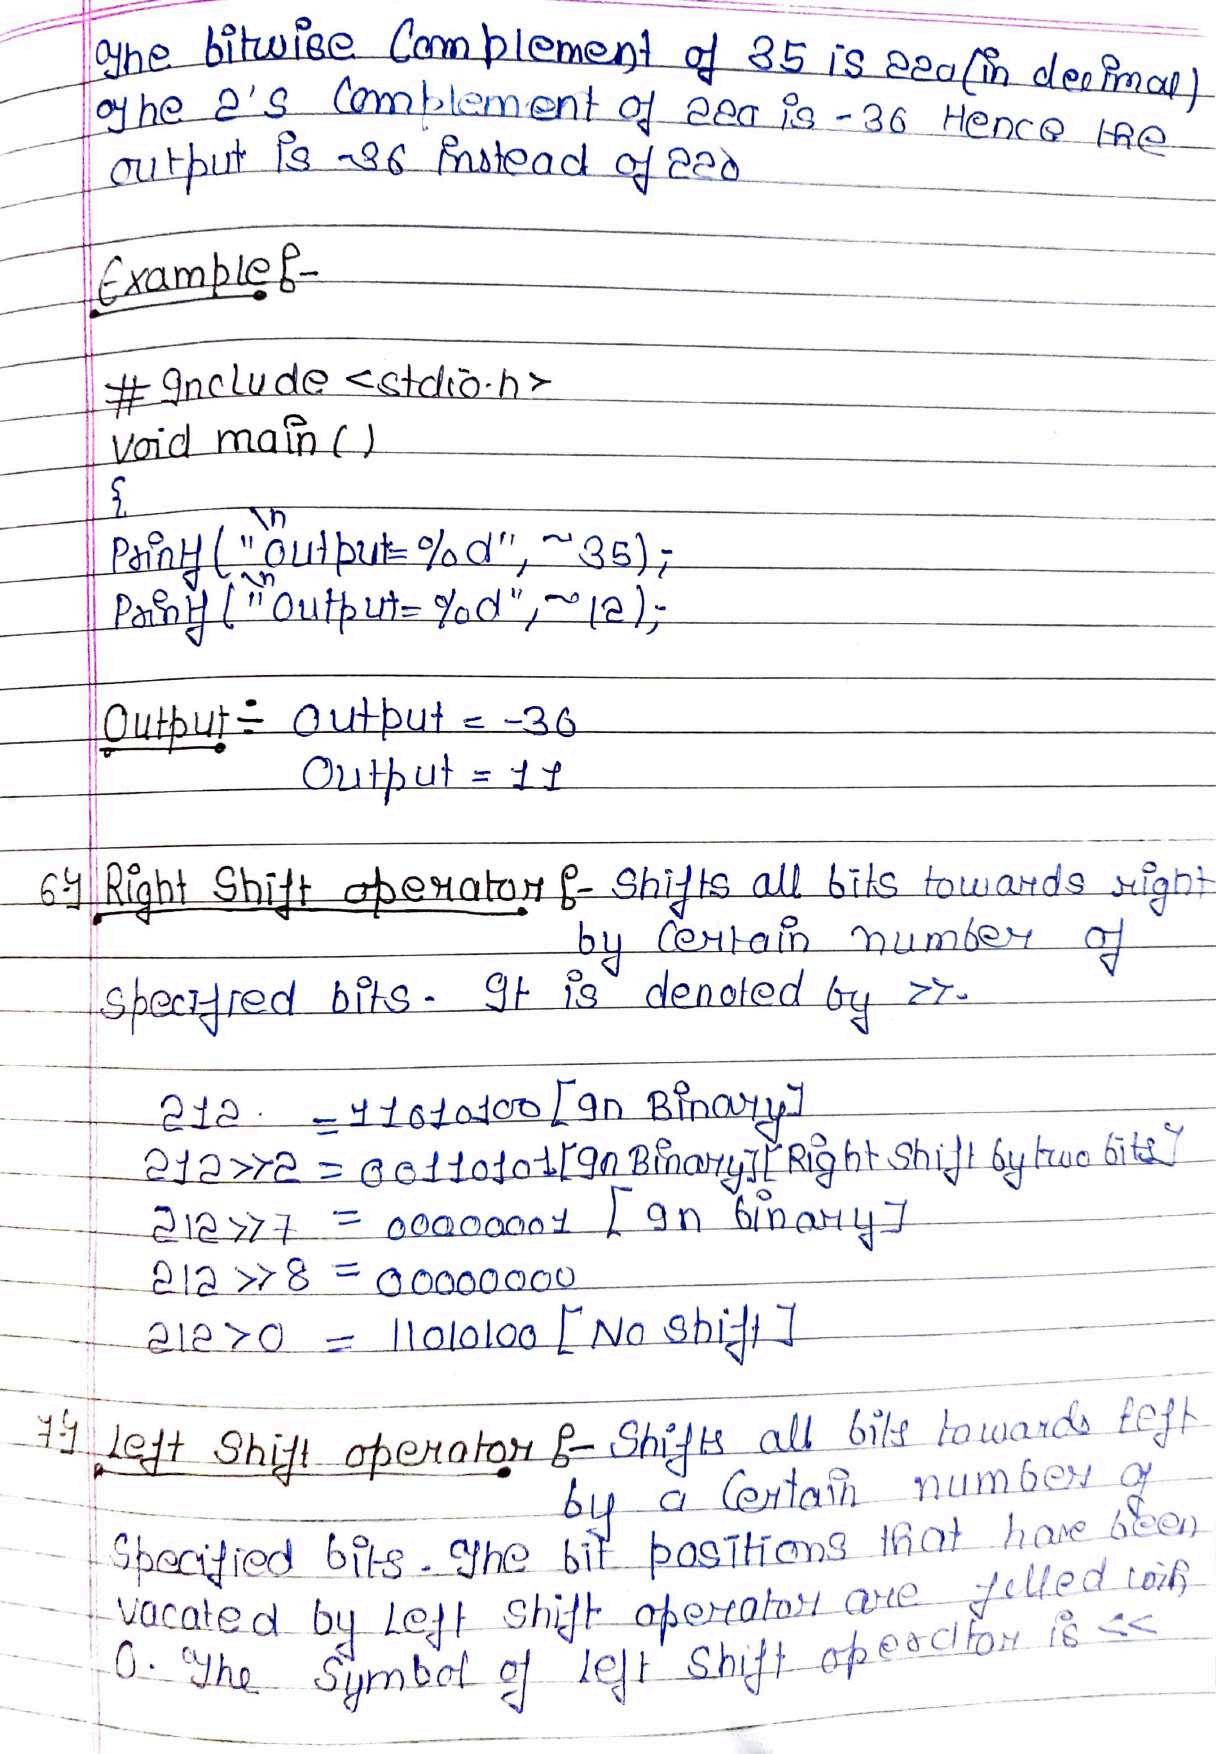 The bitwise Complement of 35 is 220 (in decimal)
The 2's Complement of 220 is -36 Hence the
output is -36 instead of 220
Example :-
# Include <stdio.h>
void main ( )
{
Printf ( "\n output = %d", ~35);
Printf ( "\n output = %d", ~12);
Output :- Output = -36
Output = 11
6) Right Shift operator :- Shifts all bits towards right
by Certain number of
specified bits. It is denoted by >>.
212 = 11010100 [In Binary]
212>>2 = 00110101 [In Binary] [Right Shift by two bits]
212>>7 = 00000001 [In binary]
212>>8 = 00000000
212>0 = 11010100 [No Shift]
7) Left Shift operator :- Shifts all bits towards left
by a Certain number of
Specified bits. The bit positions that have been
vacated by Left Shift operator are filled with
0. The Symbol of left Shift operator is <<